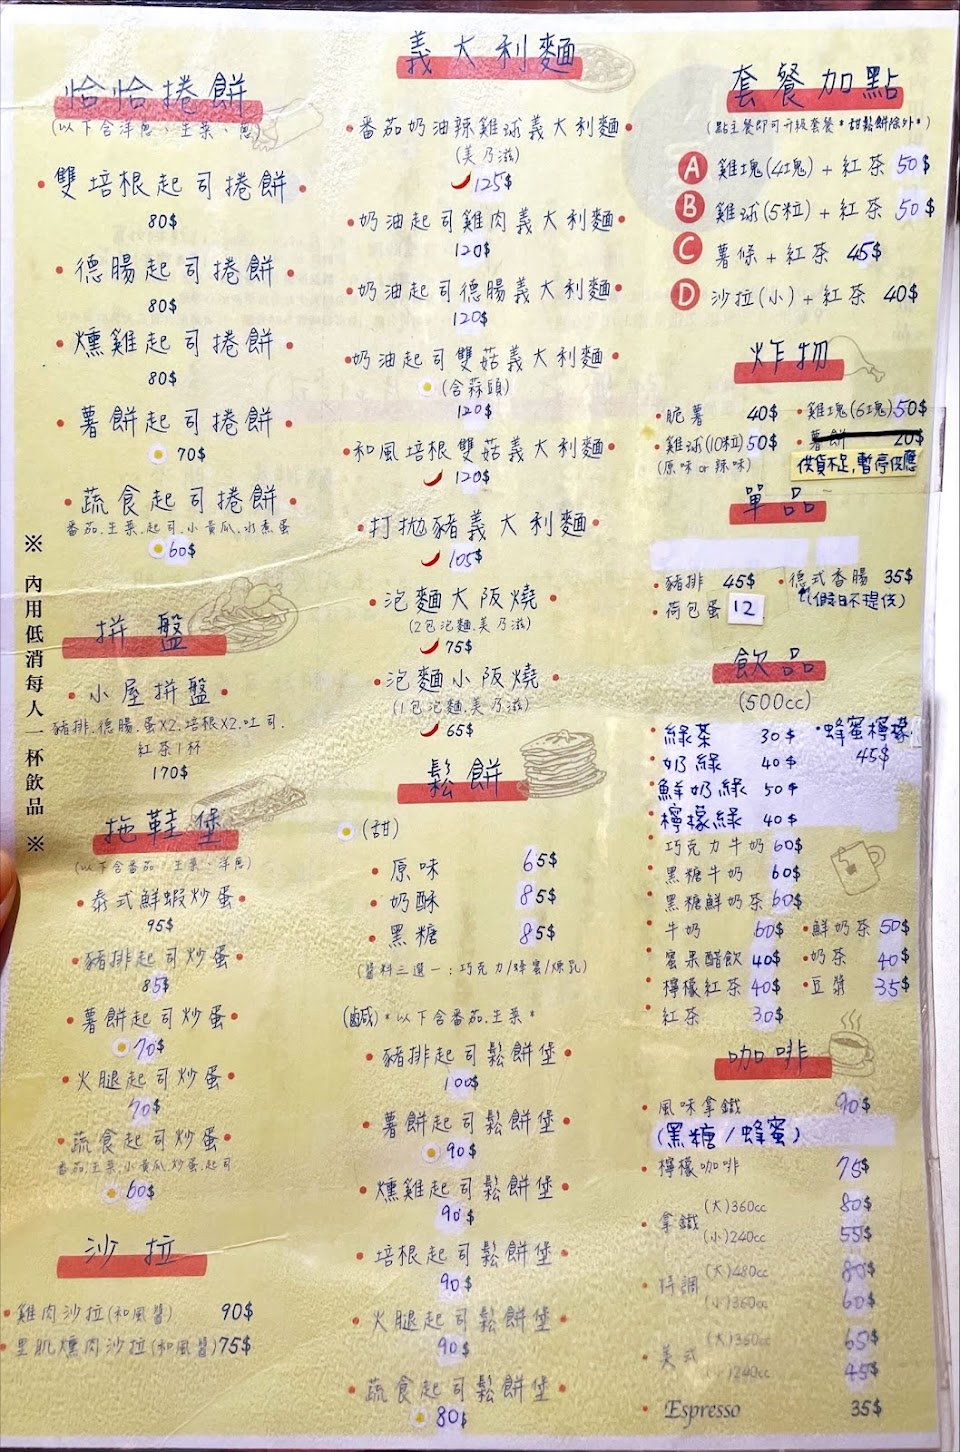 恰恰捲餅
(以下含洋蔥、生菜、蔥)
雙培根起司捲餅
80$
德腸起司捲餅
80$
燻雞起司捲餅
80$
薯餅起司捲餅
70$
蔬食起司捲餅
番茄.生菜.起司.小黃瓜.水煮蛋
60$
※ 內用低消每人一杯飲品 ※
拼盤
小屋拼盤
豬排.德腸.蛋X2.培根X2.吐司.
紅茶1杯
170$
拖鞋堡
(以下含番茄、生菜、洋蔥)
泰式鮮蝦炒蛋
95$
豬排起司炒蛋
85$
薯餅起司炒蛋
70$
火腿起司炒蛋
70$
蔬食起司炒蛋
番茄.生菜.小黃瓜.炒蛋.起司
60$
沙拉
雞肉沙拉(和風醬) 90$
里肌燻肉沙拉(和風醬) 75$
義大利麵
番茄奶油辣雞球義大利麵
(美乃滋)
125$
奶油起司雞肉義大利麵
120$
奶油起司德腸義大利麵
120$
奶油起司雙菇義大利麵
(含蒜頭)
120$
和風培根雙菇義大利麵
120$
打拋豬義大利麵
105$
泡麵大阪燒
(2包泡麵.美乃滋)
75$
泡麵小阪燒
(1包泡麵.美乃滋)
65$
鬆餅
(甜)
原味 65$
奶酥 85$
黑糖 85$
(醬料三選一：巧克力/蜂蜜/煉乳)
(鹹)*以下含番茄.生菜*
豬排起司鬆餅堡
100$
薯餅起司鬆餅堡
90$
燻雞起司鬆餅堡
90$
培根起司鬆餅堡
90$
火腿起司鬆餅堡
90$
蔬食起司鬆餅堡
80$
套餐加點
(點主餐即可升級套餐*甜鬆餅除外*)
A 雞塊(4塊)+紅茶 50$
B 雞球(5粒)+紅茶 50$
C 薯條+紅茶 45$
D 沙拉(小)+紅茶 40$
炸物
脆薯 40$ 雞塊(6塊) 50$
雞球(10粒) 50$ 薯餅 20$
(原味or辣味) 供貨不足,暫停供應
單品
豬排 45$ 德式香腸 35$
荷包蛋 12 (假日不提供)
飲品
(500cc)
綠茶 30$ 蜂蜜檸檬
奶綠 40$ 45$
鮮奶綠 50$
檸檬綠 40$
巧克力牛奶 60$
黑糖牛奶 60$
黑糖鮮奶茶 60$
牛奶 60$ 鮮奶茶 50$
蜜果醋飲 40$ 奶茶 40$
檸檬紅茶 40$ 豆漿 35$
紅茶 30$
咖啡
風味拿鐵 90$
(黑糖/蜂蜜)
檸檬咖啡 75$
拿鐵 (大)360cc 80$
(小)240cc 55$
特調 (大)480cc 80$
(小)360cc 60$
美式 (大)360cc 65$
(小)240cc 45$
Espresso 35$